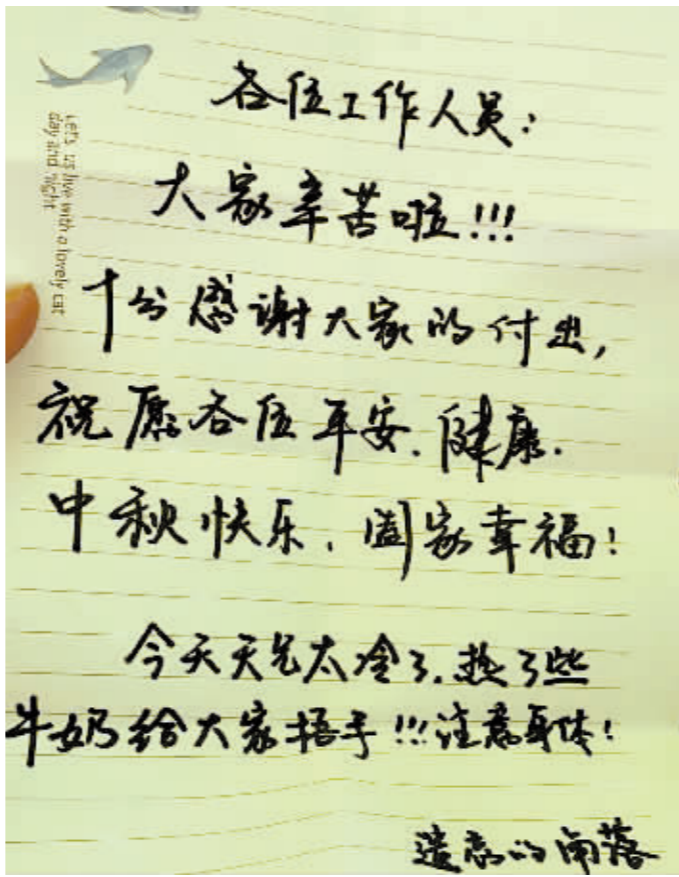 Let's us live with a lovely cat
day and night
各位工作人员:
大家辛苦啦!!!
十分感谢大家的付出,
祝愿各位平安、健康.
中秋快乐、阖家幸福!
今天天气太冷了,热了些
牛奶给大家捂手!!!注意身体!
遗忘的角落